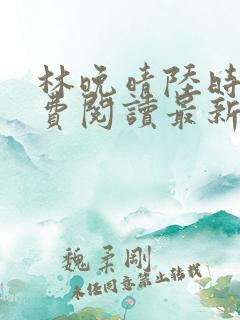 林晚晴陸時
費閱讀最新
魏柔剛
未經同意禁止轉載